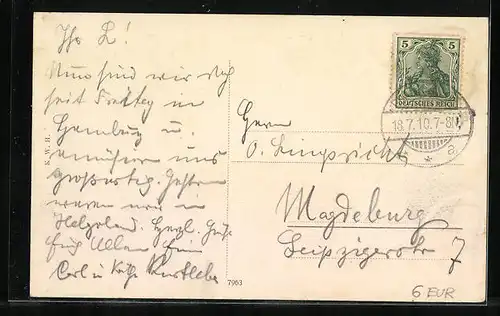 Ihr L!
Nun sind wir doch
seit Freitag in
Hamburg u.
amüsieren uns
großartig. Gestern
waren wir in
Helgoland. Herzl. Grüße
Euch Allen
Carl u. Käthe
K.W.H.
7963
5 5
DEUTSCHES REICH
18.7.10.7-8V.
* a
Herrn
O.
Magdeburg
Leipzigerstr 7
6 EUR